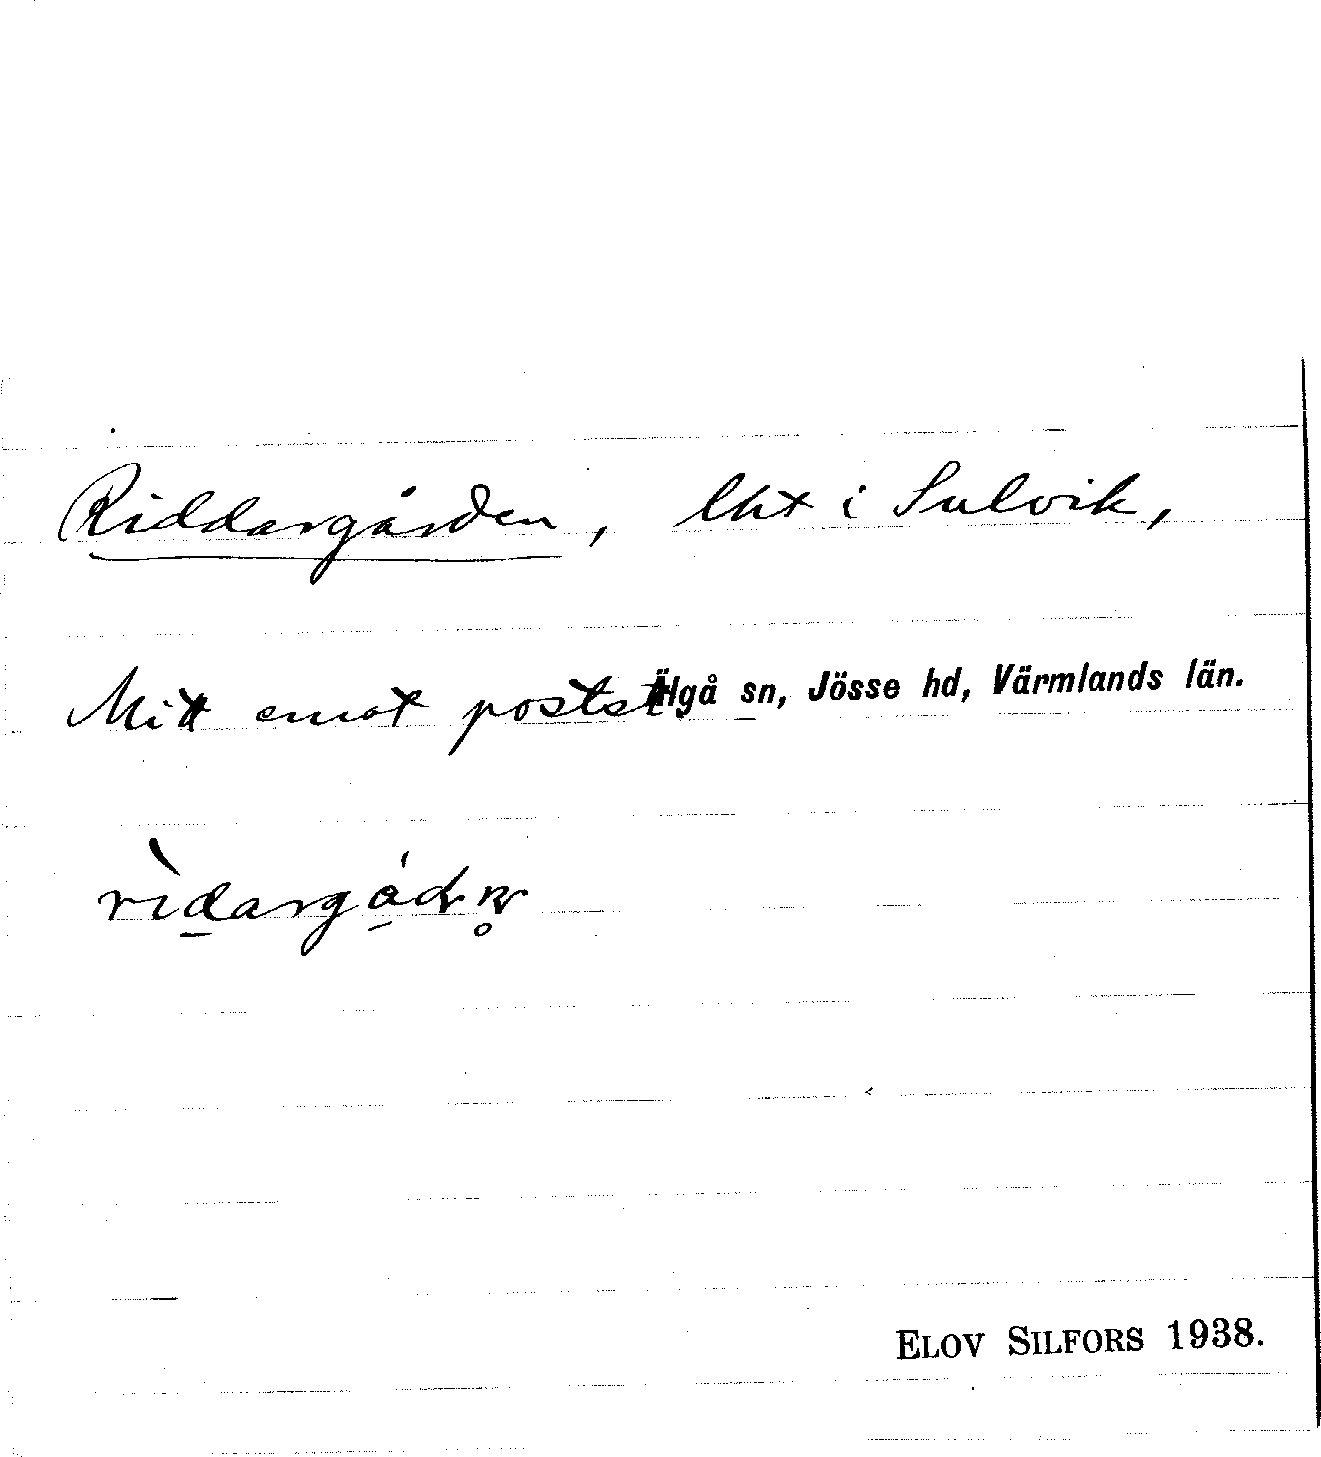 Riddargården, lht i Sulvik,
Mitt emot postst Älgå sn, Jösse hd, Värmlands län.
ELOV SILFORS 1938.